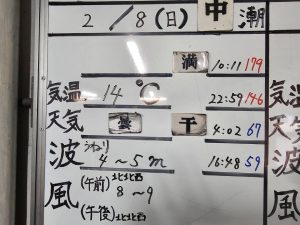 2/8(日) 中潮
満 10:11 179
気温 14℃ 22:59 146
天気 曇 干 4:02 67
波 うねり 4~5m 16:48 59
風 (午前) 北北西 8~9
(午後) 北北西